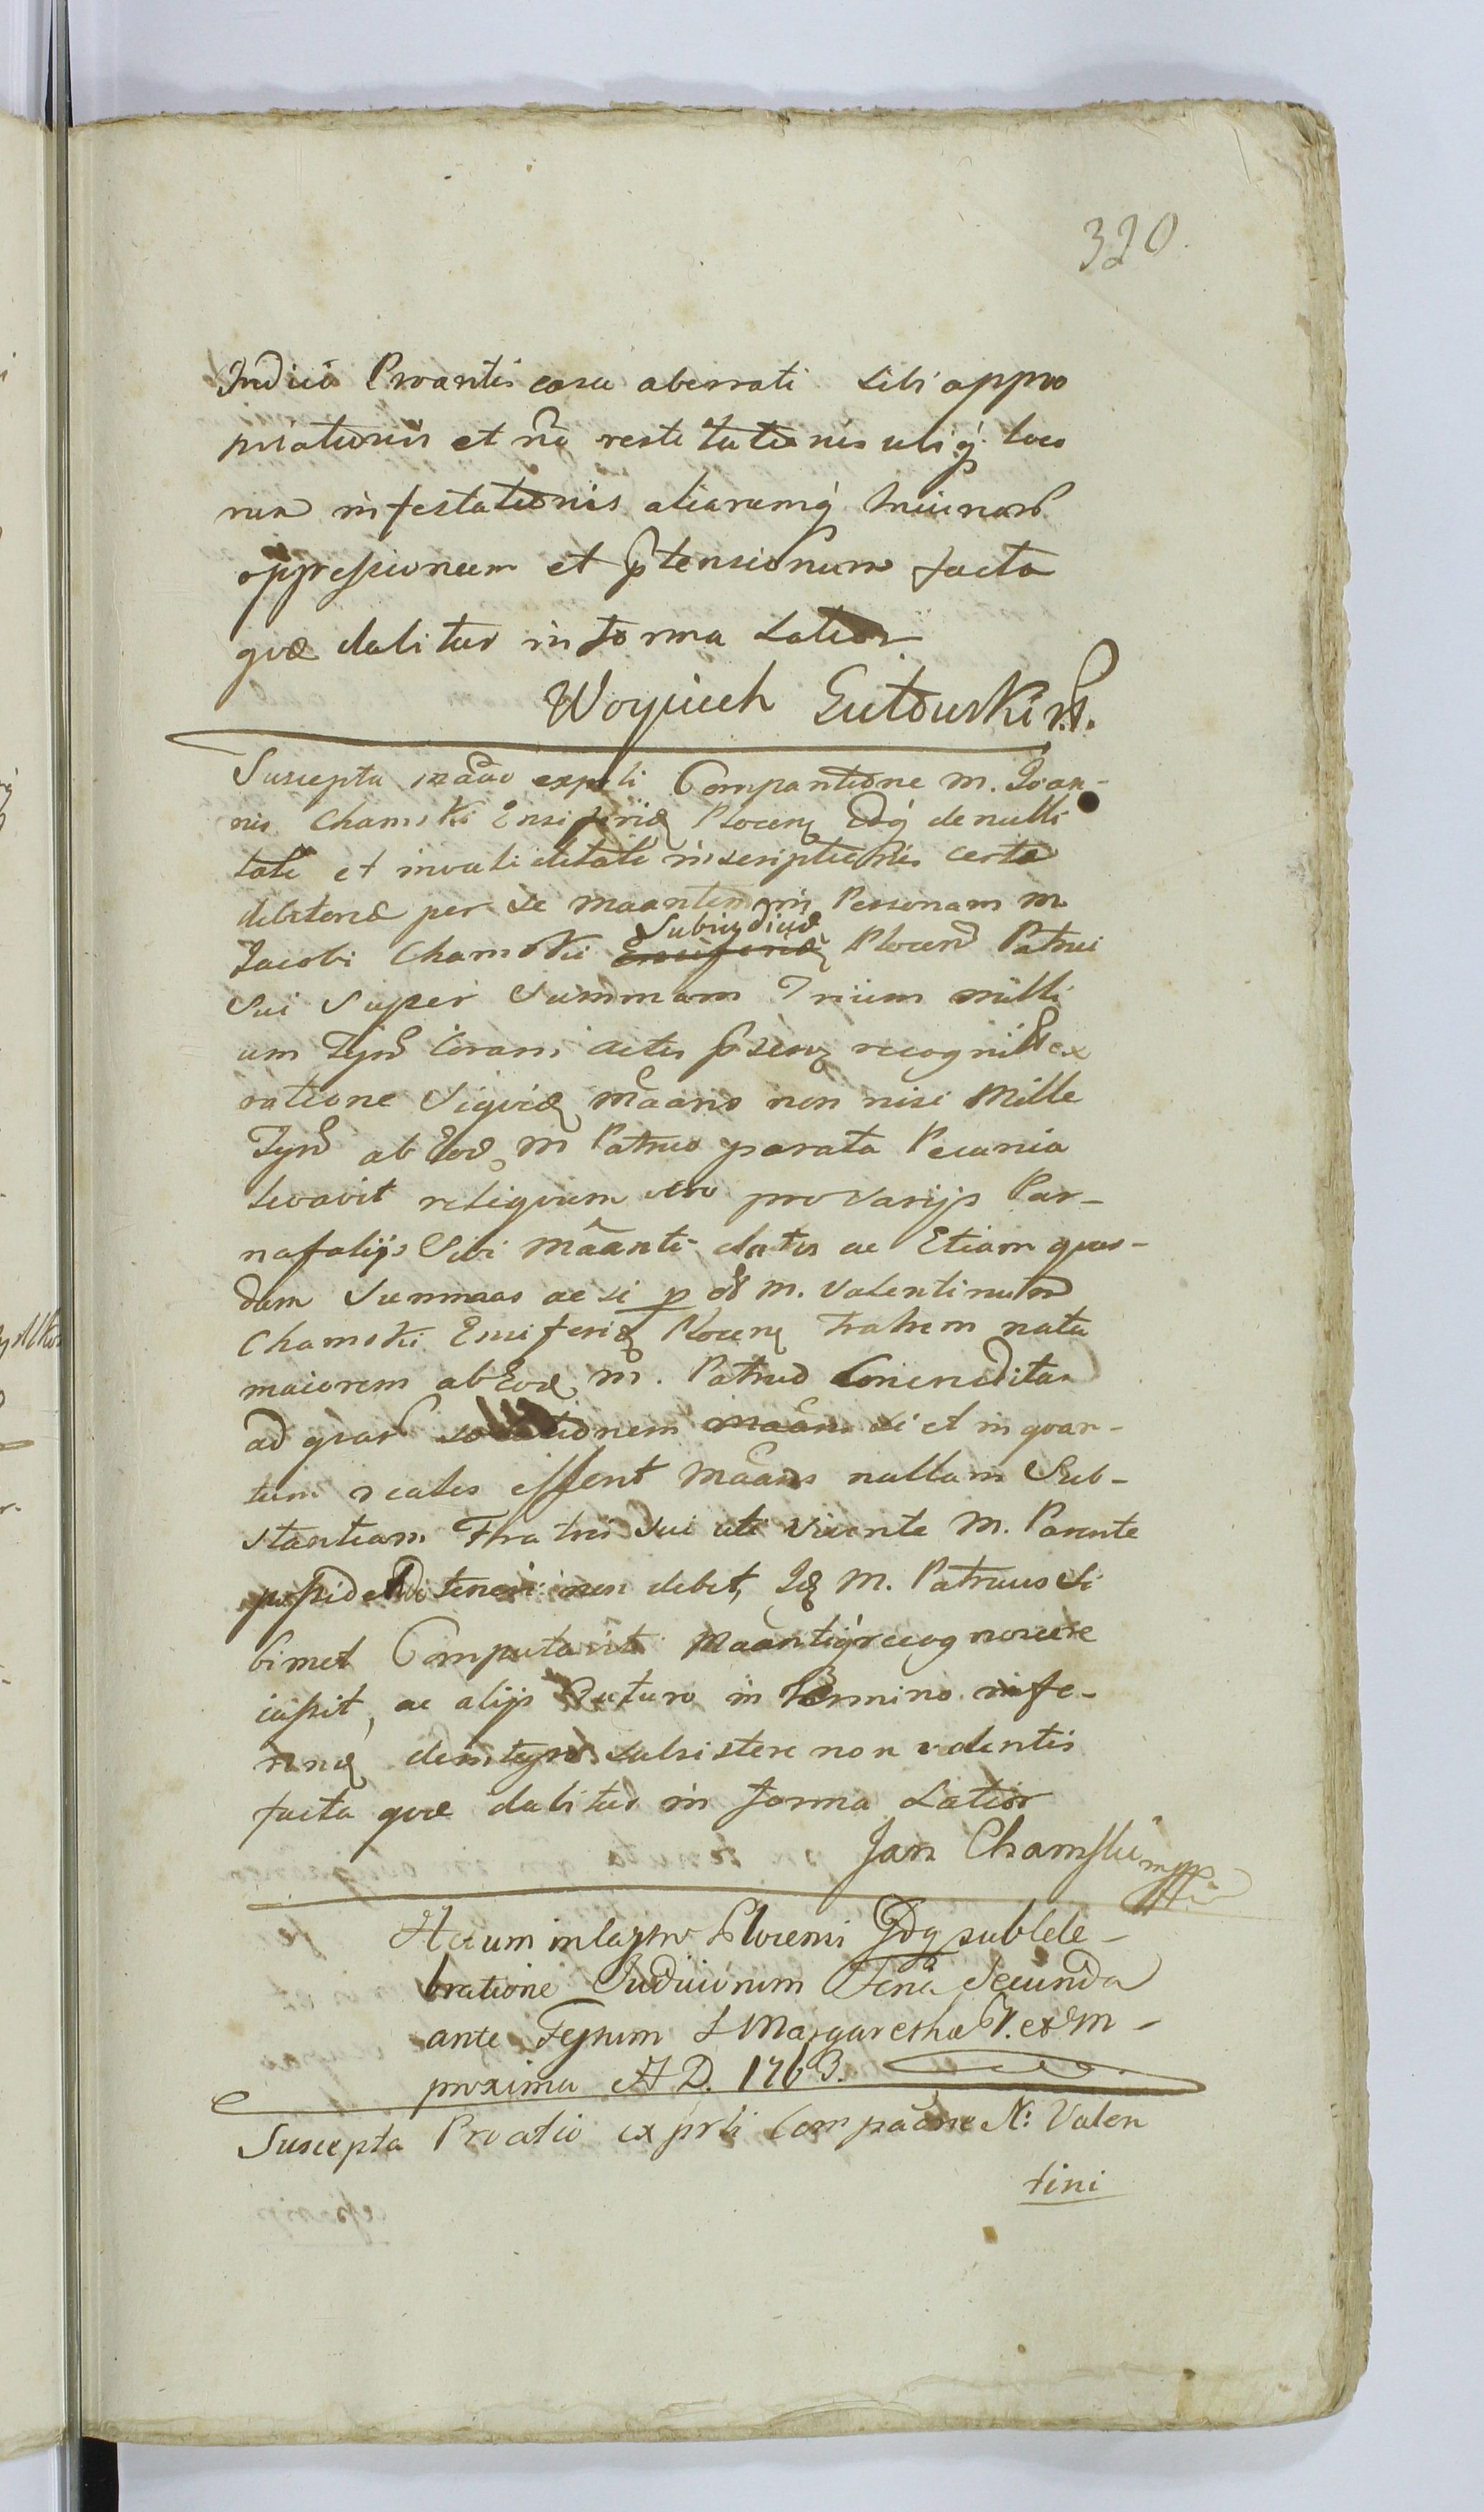 320.
Judicii Proantis casu aberrati sibi appro
priationis et nō restitutionis ubiq́ loco
rum infestationis aliarumq́ Iniuriarū
oppressionum et p̄tensionum facta
quæ dabitur in forma Latior
Woyciech Gutowski
Suscepta exprsli Comparitione M. Joan-
nis Chamski Ensiferidę Plocen de nulli
tate et invaliditate inscriptionis certæ
debitoriæ per se maantem in Personam M.
Jacobi Chamski Subiudicidę Plocen Patrui
sui super Summam Trium milli
um Tynf Coram actis p̄sen recognitæ ex
ratione siquidę māans non nisi Mille
Tynf ab Eodę M Patruo parata Pecunia
levavit reliquum vero pro varijs Par-
nafalijs Sibi māanti datis ac Etiam quas-
dam Summas ac si p M. Valentinum
Chamski Ensiferidę Plocen Fratrem natu
maiorem ab Eodę M. Patruo
ad quarū solutionem maans si et in quan-
tum reales essent māans nullam Sub-
stantiam Fratris sui uti vivente M. Parente
possidendo teneri non debet, Idę M. Patruus si
bimet Computavit Maantiq́ recognoscere
iussit, ac alijs Futuro in Termino infe-
rendę subsistere non valentis
facta quæ dabitur in forma Latior
Jan Chamski mpp
Actum in Castro Plocensi sub Cele-
bratione Judiciorum Feria Secunda
ante Festum S Margarethæ V. et M-
proxima A D. 1763.
Suscepta Proatio ex prsli Compaōne N: Valen
tini